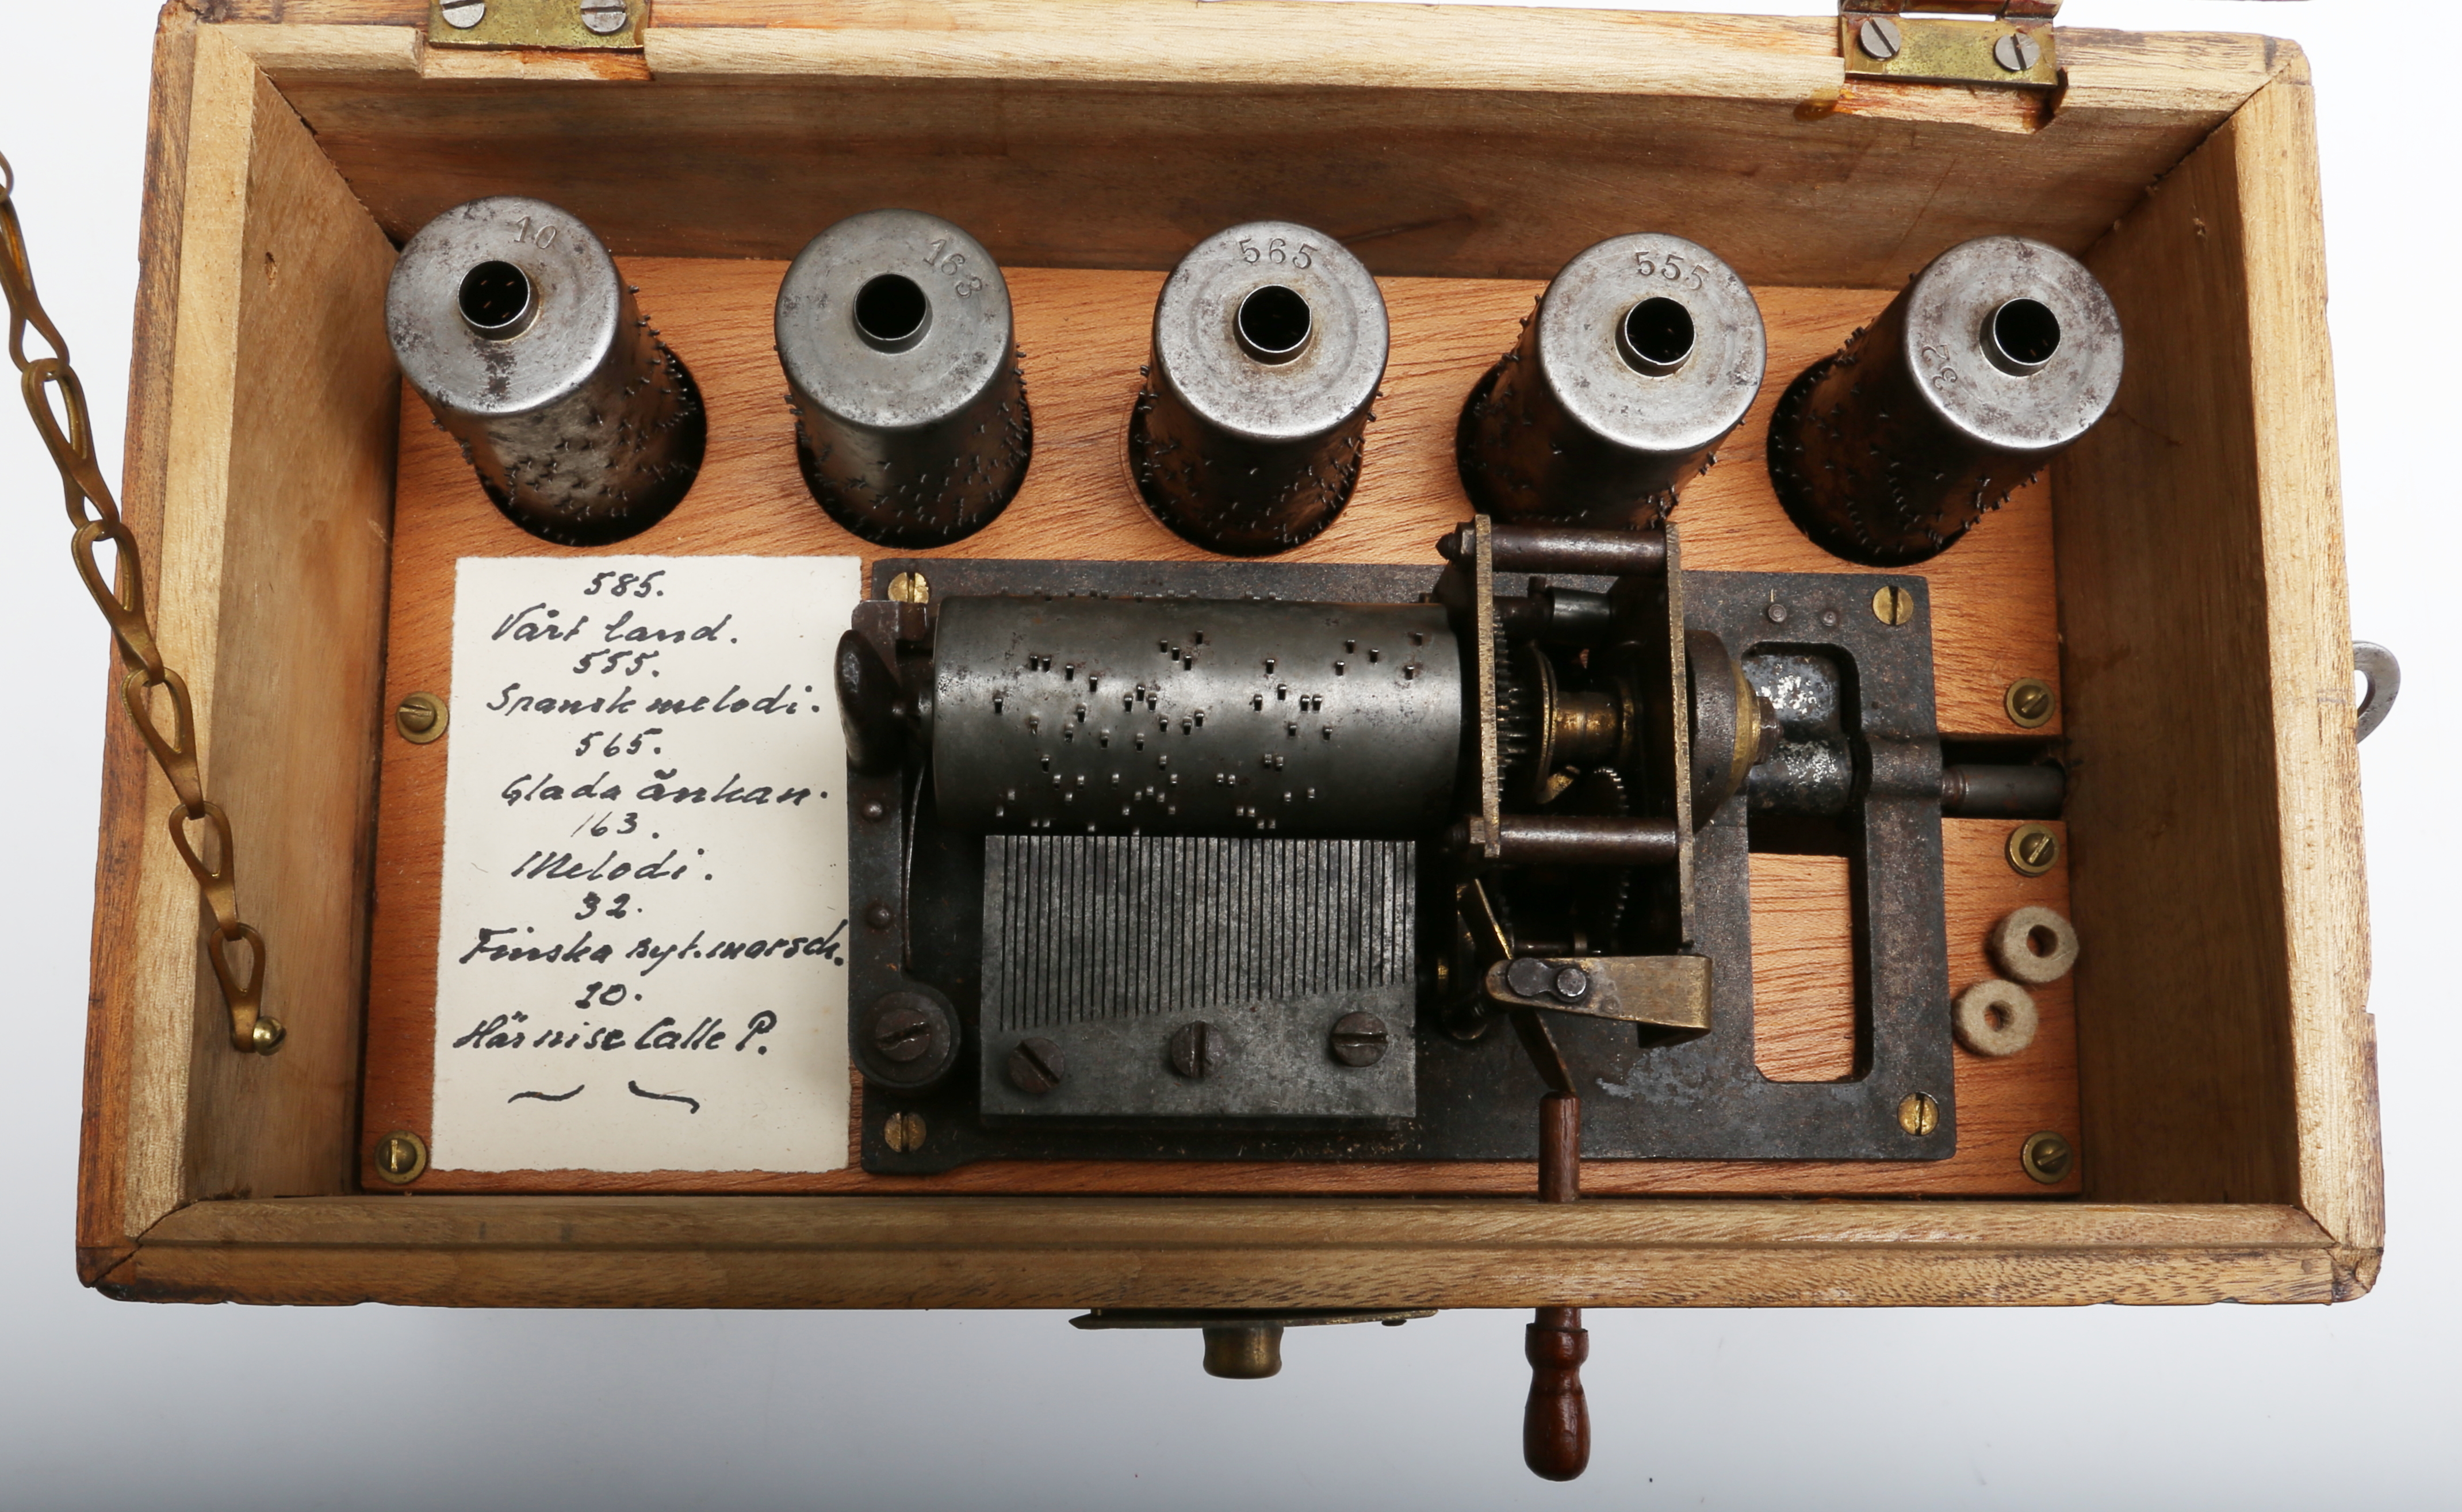 10
163
565
555
32
585.
Vårt land.
555.
Spansk melodi.
565.
Glada änkan.
163.
Melodi.
32.
Finska ryt. marsch.
10.
Här nise Calle P.